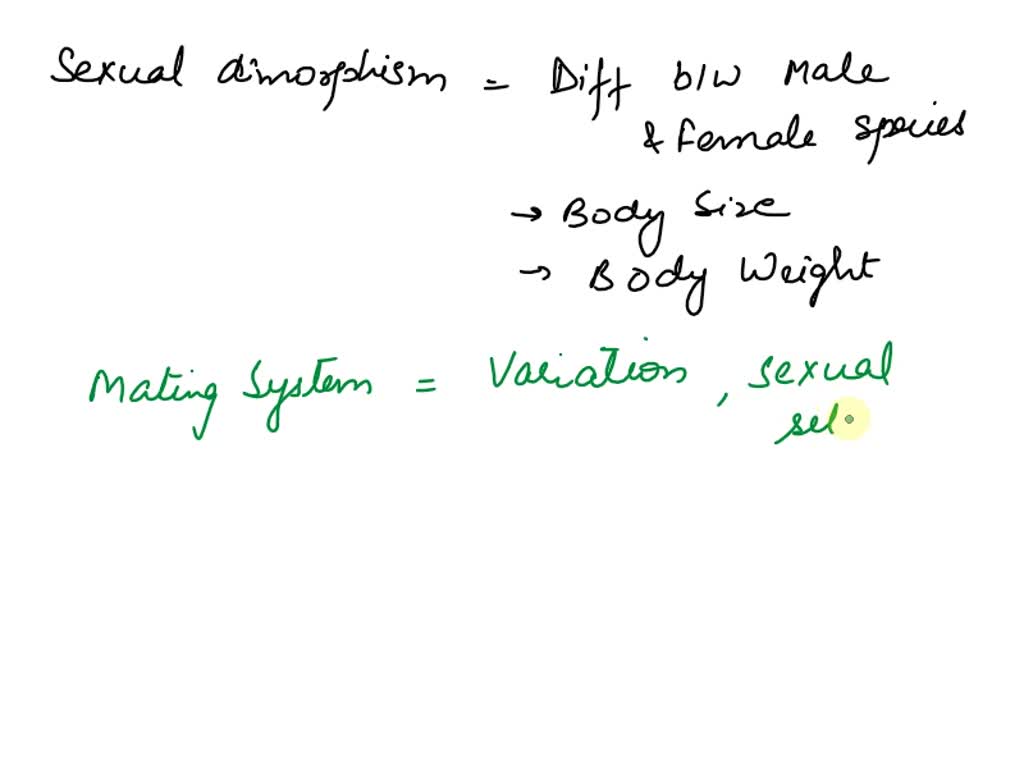 Sexual dimorphism = Diff b/w Male
& Female species
→ Body Size
→ Body Weight
Mating System = Variation, sexual
sel